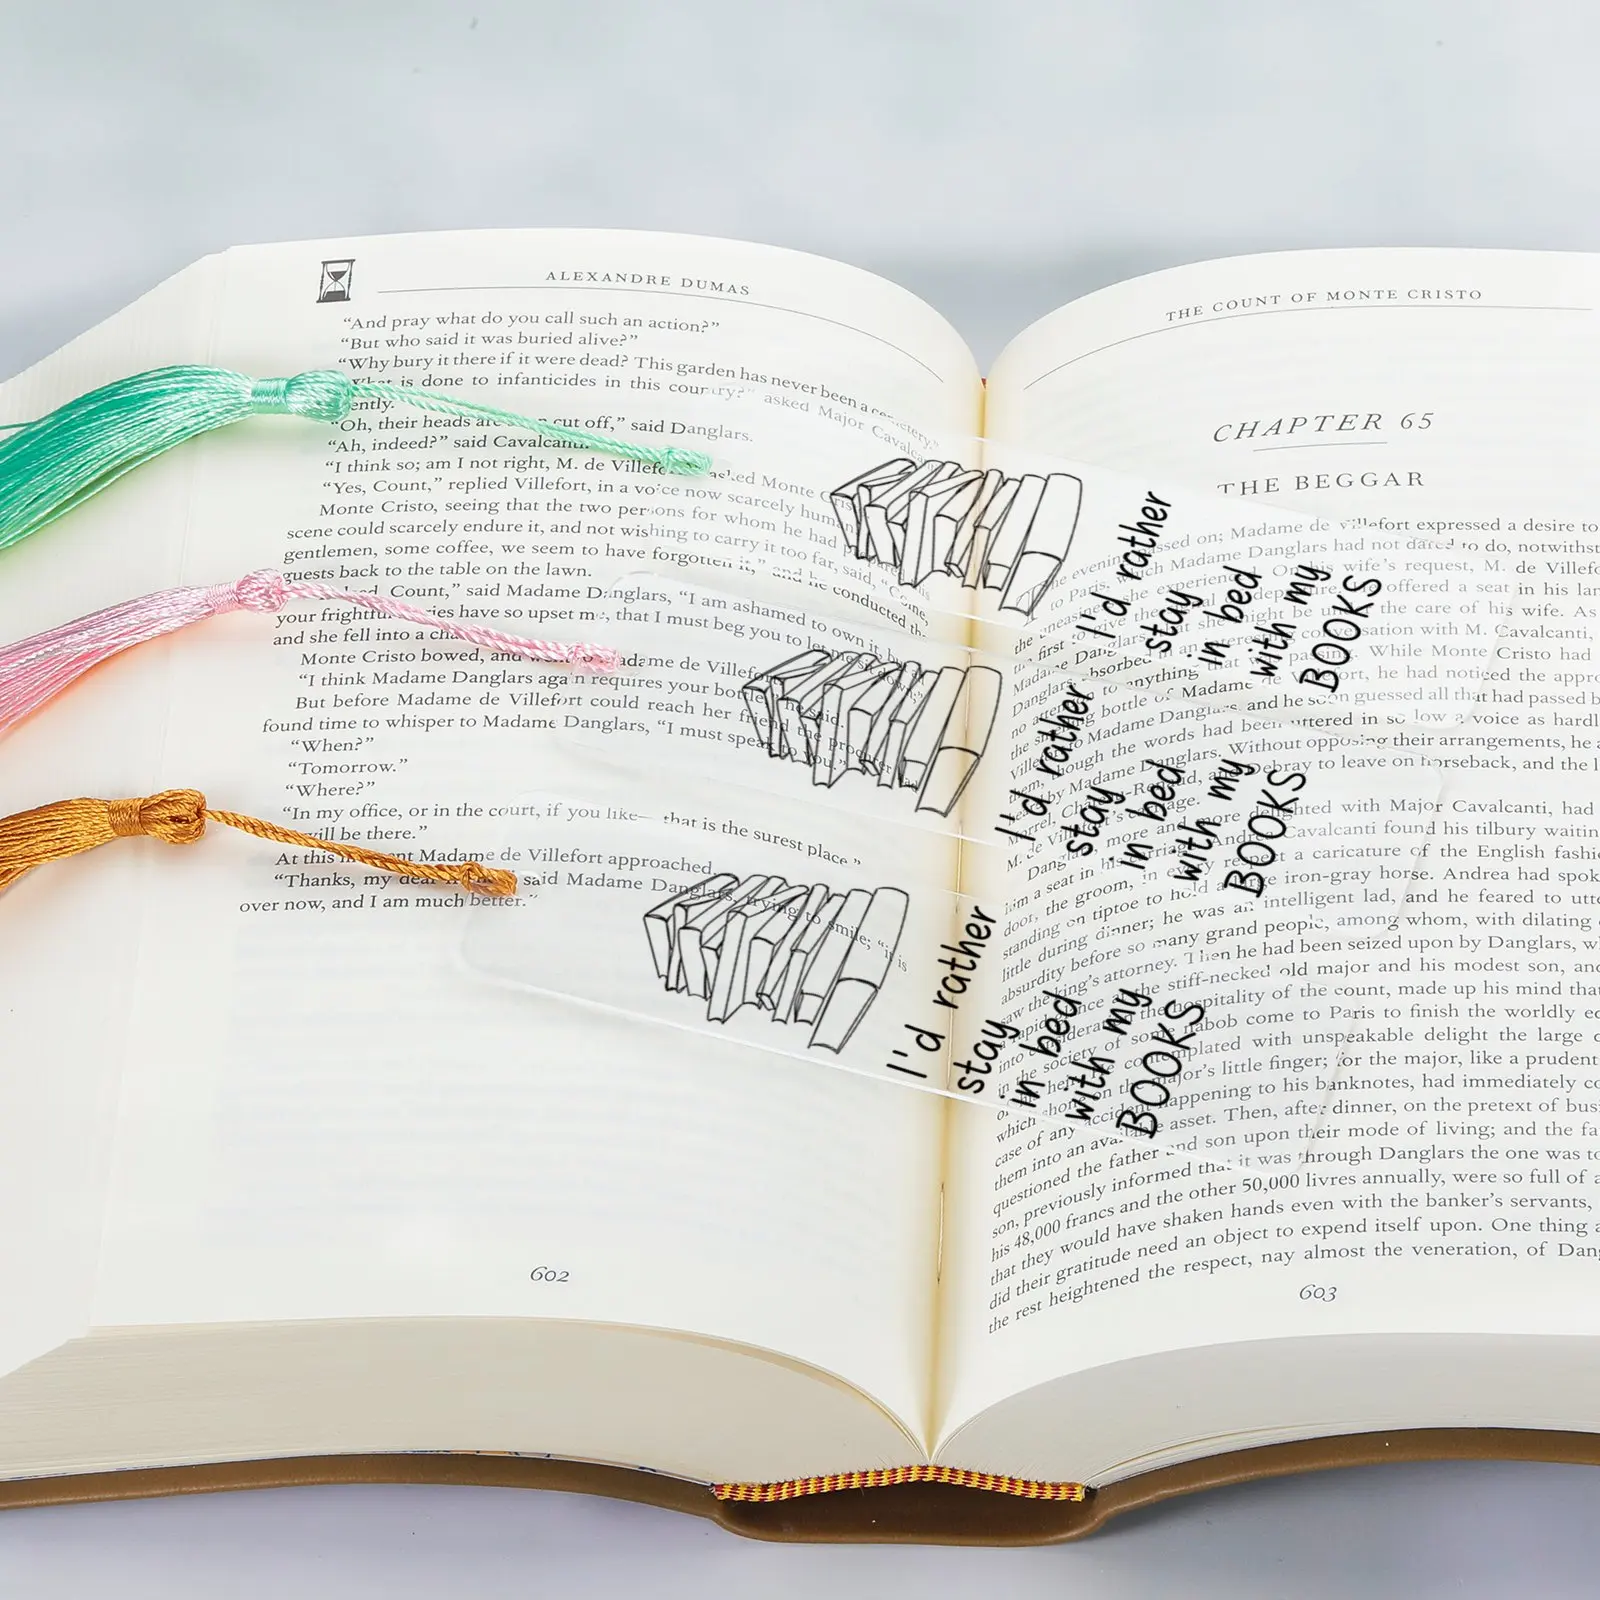 ALEXANDRE DUMAS
“And pray what do you call such an action?”
“But who said it was buried alive?”
“Why bury it there if it were dead? This garden has never been a cemetery.”
is done to infanticides in this country?” asked Major
ently.
“Oh, their heads are cut off,” said Danglars.
“Ah, indeed?” said Cavalcanti.
“I think so; am I not right, M. de Villefort asked Monte Cristo
“Yes, Count,” replied Villefort, in a voice now scarcely human
Monte Cristo, seeing that the two persons for whom he had
scene could scarcely endure it, and not wishing to carry it too far, said, “Come,
gentlemen, some coffee, we seem to have forgotten it,” and he conducted the
guests back to the table on the lawn.
Count,” said Madame Danglars, “I am ashamed to own it,
your frightful ries have so upset me, that I must beg you to let me sit down;”
and she fell into a
Monte Cristo bowed, and went to Madame de Villefort
“I think Madame Danglars again requires your bottle,” he said.
But before Madame de Villefort could reach her friend the
found time to whisper to Madame Danglars, “I must speak to you.”
“When?”
“Tomorrow.”
“Where?”
“In my office, or in the court, if you like— that is the surest place.”
will be there.”
At this Madame de Villefort approached.
“Thanks, my dear said Madame Danglars, trying to smile; “it is
over now, and I am much better.”
602
THE COUNT OF MONTE CRISTO
CHAPTER 65
THE BEGGAR
evening passed on; Madame de Villefort expressed a desire to
to Paris, which Madame Danglars had not dared to do, notwithst
wife’s request, M. de Villefo
offered a seat in his lan
the care of his wife. As
conversation with M. Cavalcanti,
passing. While Monte Cristo had
he had noticed the appro
and he soon guessed all that had passed b
though the words had been uttered in so low a voice as hardl
by Madame Danglars. Without opposing their arrangements, he a
Debray to leave on horseback, and the l
delighted with Major Cavalcanti, had
Cavalcanti found his tilbury waitin
a caricature of the English fashi
iron-gray horse. Andrea had spok
standing on tiptoe to hold a intelligent lad, and he feared to utte
little during dinner; he was an people, among whom, with dilating
absurdity before so many grand been seized upon by Danglars, wh
king’s attorney. Then he had old major and his modest son, and
the stiff-necked count, made up his mind that
hospitality of the Paris to finish the worldly ed
nabob come to unspeakable delight the large d
finger; for the major, like a prudent
happening to his banknotes, had immediately co
case of any asset. Then, after dinner, on the pretext of busi
them into an son upon their mode of living; and the fa
questioned the father and it was through Danglars the one was to
son, previously informed that 50,000 livres annually, were so full of a
his 48,000 francs and the other even with the banker’s servants,
that they would have shaken hands to expend itself upon. One thing a
did their gratitude need an object almost the veneration, of Dan
the rest heightened the respect, nay
603
I'd rather
stay
in bed
with my
BOOKS
I'd rather
stay
in bed
with my
BOOKS
I'd rather
stay
in bed
with my
BOOKS